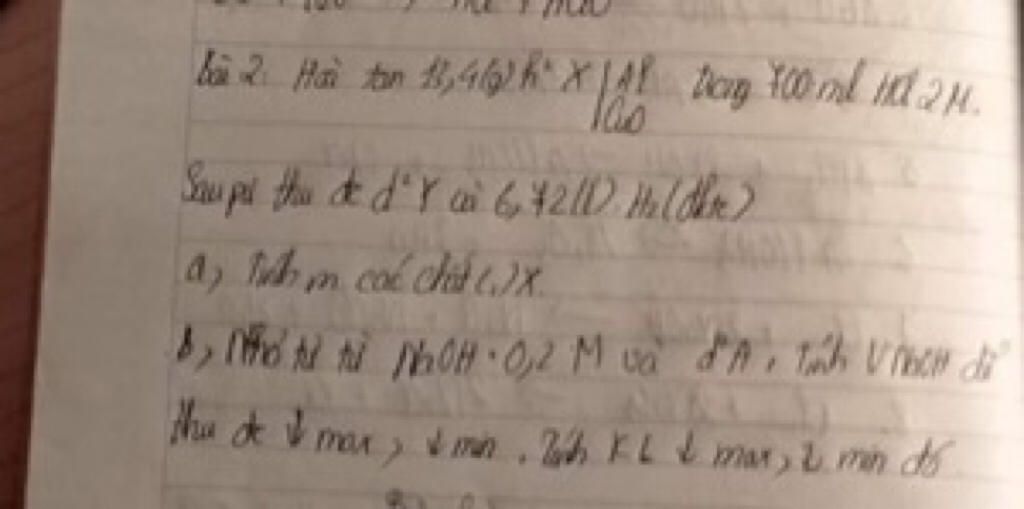 bài 2. Hoà tan 13,4(g) h² X Al CuO trong 400ml HCl 2M.
Sau pứ thu đc d² Y và 6,72(l) H₂(đktc)
a, Tính m các chất (.) X.
b, Nhỏ từ từ NaOH 0,2 M và d²A. Tính V NaOH để
thu đc ↓ max, ↓ min. Tính KL ↓ max, ↓ min đó